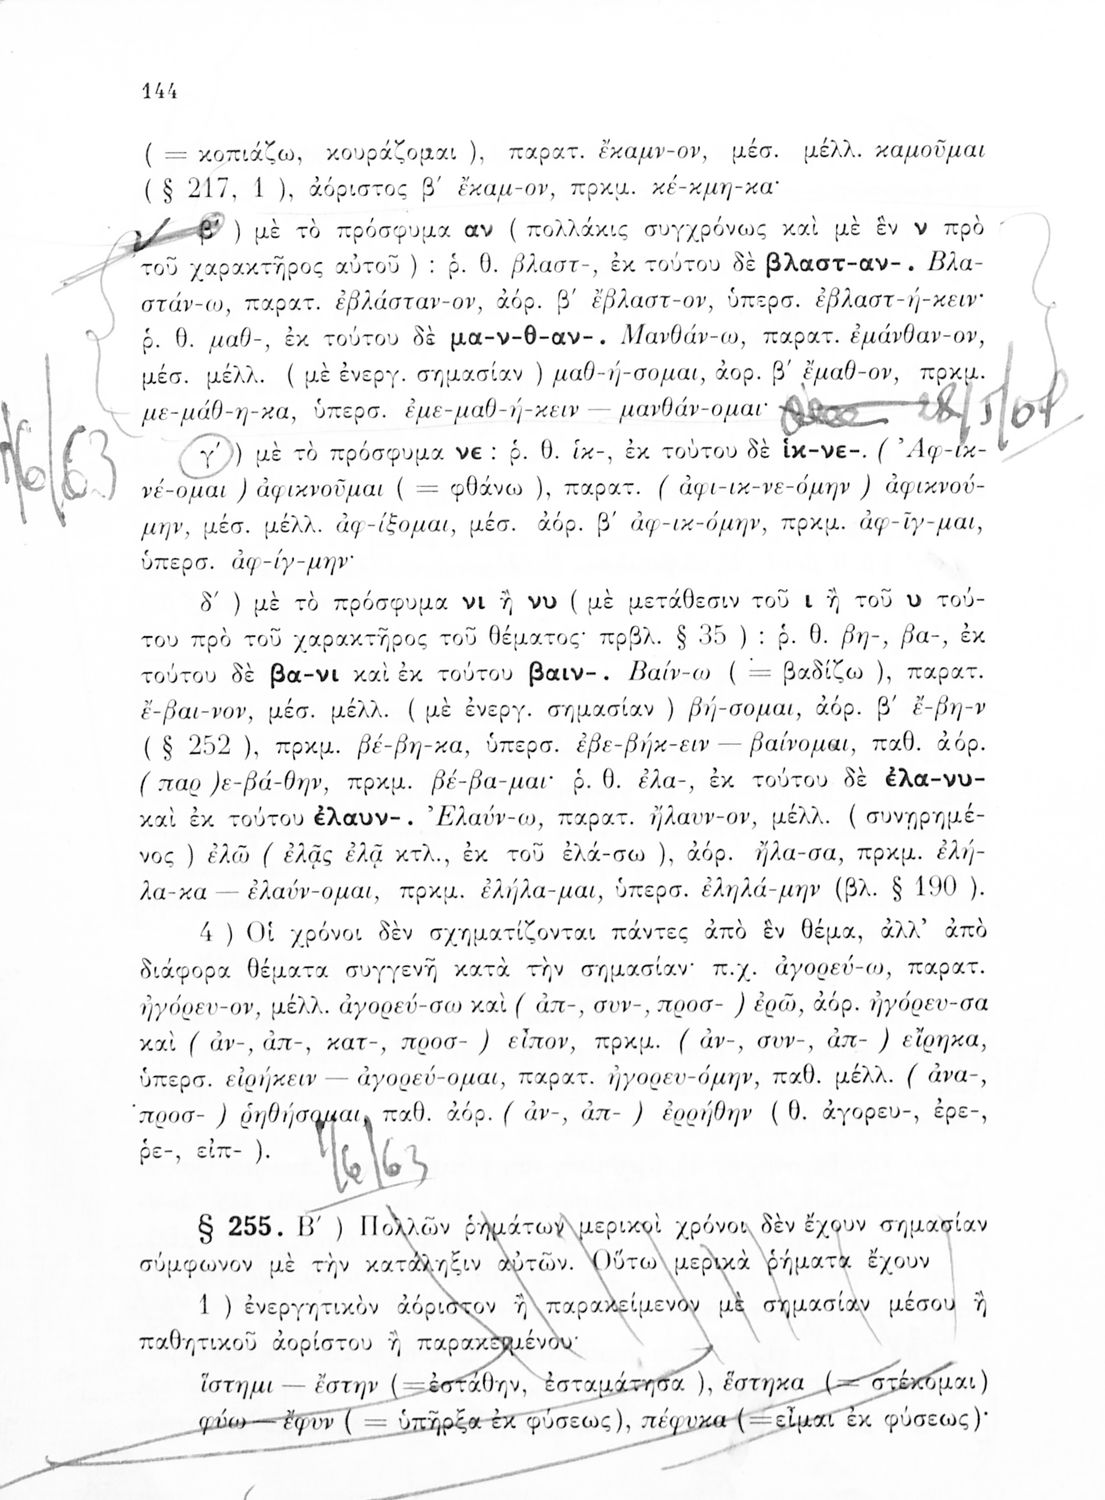 144
( = κοπιάζω, κουράζομαι ), παρατ. ἔκαμν-ον, μέσ. μέλλ. καμοῦμαι
( § 217, 1 ), ἀόριστος β′ ἔκαμ-ον, πρκμ. κέ-κμη-κα·
β′ ) μὲ τὸ πρόσφυμα αν ( πολλάκις συγχρόνως καὶ μὲ ἓν ν πρὸ
τοῦ χαρακτῆρος αὐτοῦ ) : ῥ. θ. βλαστ-, ἐκ τούτου δὲ βλαστ-αν- . Βλα-
στάν-ω, παρατ. ἐβλάσταν-ον, ἀόρ. β′ ἔβλαστ-ον, ὑπερσ. ἐβλαστ-ή-κειν·
ῥ. θ. μαθ-, ἐκ τούτου δὲ μα-ν-θ-αν- . Μανθάν-ω, παρατ. ἐμάνθαν-ον,
μέσ. μέλλ. ( μὲ ἐνεργ. σημασίαν ) μαθ-ή-σομαι, ἀορ. β′ ἔμαθ-ον, πρκμ.
με-μάθ-η-κα, ὑπερσ. ἐμε-μαθ-ή-κειν — μανθάν-ομαι·
γ′ ) μὲ τὸ πρόσφυμα νε : ῥ. θ. ἱκ-, ἐκ τούτου δὲ ἱκ-νε-. ( Ἀφ-ικ-
νέ-ομαι ) ἀφικνοῦμαι ( = φθάνω ), παρατ. ( ἀφι-ικ-νε-όμην ) ἀφικνού-
μην, μέσ. μέλλ. ἀφ-ίξομαι, μέσ. ἀόρ. β′ ἀφ-ικ-όμην, πρκμ. ἀφ-ῖγ-μαι,
ὑπερσ. ἀφ-ίγ-μην·
δ′ ) μὲ τὸ πρόσφυμα νι ἢ νυ ( μὲ μετάθεσιν τοῦ ι ἢ τοῦ υ τού-
του πρὸ τοῦ χαρακτῆρος τοῦ θέματος· πρβλ. § 35 ) : ῥ. θ. βη-, βα-, ἐκ
τούτου δὲ βα-νι καὶ ἐκ τούτου βαιν- . Βαίν-ω ( = βαδίζω ), παρατ.
ἔ-βαι-νον, μέσ. μέλλ. ( μὲ ἐνεργ. σημασίαν ) βή-σομαι, ἀόρ. β′ ἔ-βη-ν
( § 252 ), πρκμ. βέ-βη-κα, ὑπερσ. ἐβε-βήκ-ειν — βαίνομαι, παθ. ἀόρ.
( παρ )ε-βά-θην, πρκμ. βέ-βα-μαι· ῥ. θ. ἐλα-, ἐκ τούτου δὲ ἐλα-νυ-
καὶ ἐκ τούτου ἐλαυν- . Ἐλαύν-ω, παρατ. ἤλαυν-ον, μέλλ. ( συνῃρημέ-
νος ) ἐλῶ ( ἐλᾷς ἐλᾷ κτλ., ἐκ τοῦ ἐλά-σω ), ἀόρ. ἤλα-σα, πρκμ. ἐλή-
λα-κα — ἐλαύν-ομαι, πρκμ. ἐλήλα-μαι, ὑπερσ. ἐληλά-μην (βλ. § 190 ).
4 ) Οἱ χρόνοι δὲν σχηματίζονται πάντες ἀπὸ ἓν θέμα, ἀλλ’ ἀπὸ
διάφορα θέματα συγγενῆ κατὰ τὴν σημασίαν· π.χ. ἀγορεύ-ω, παρατ.
ἠγόρευ-ον, μέλλ. ἀγορεύ-σω καὶ ( ἀπ-, συν-, προσ- ) ἐρῶ, ἀόρ. ἠγόρευ-σα
καὶ ( ἀν-, ἀπ-, κατ-, προσ- ) εἶπον, πρκμ. ( ἀν-, συν-, ἀπ- ) εἴρηκα,
ὑπερσ. εἰρήκειν — ἀγορεύ-ομαι, παρατ. ἠγορευ-όμην, παθ. μέλλ. ( ἀνα-,
προσ- ) ῥηθήσομαι, παθ. ἀόρ. ( ἀν-, ἀπ- ) ἐρρήθην ( θ. ἀγορευ-, ἐρε-,
ῥε-, εἰπ- ).
1/6/63
§ 255. Β′ ) Πολλῶν ῥημάτων μερικοὶ χρόνοι δὲν ἔχουν σημασίαν
σύμφωνον μὲ τὴν κατάληξιν αὐτῶν. Οὕτω μερικὰ ῥήματα ἔχουν
1 ) ἐνεργητικὸν ἀόριστον ἢ παρακείμενον μὲ σημασίαν μέσου ἢ
παθητικοῦ ἀορίστου ἢ παρακειμένου·
ἵστημι — ἔστην (=ἐστάθην, ἐσταμάτησα ), ἕστηκα (= στέκομαι)
φύω — ἔφυν ( = ὑπῆρξα ἐκ φύσεως), πέφυκα (=εἶμαι ἐκ φύσεως)·